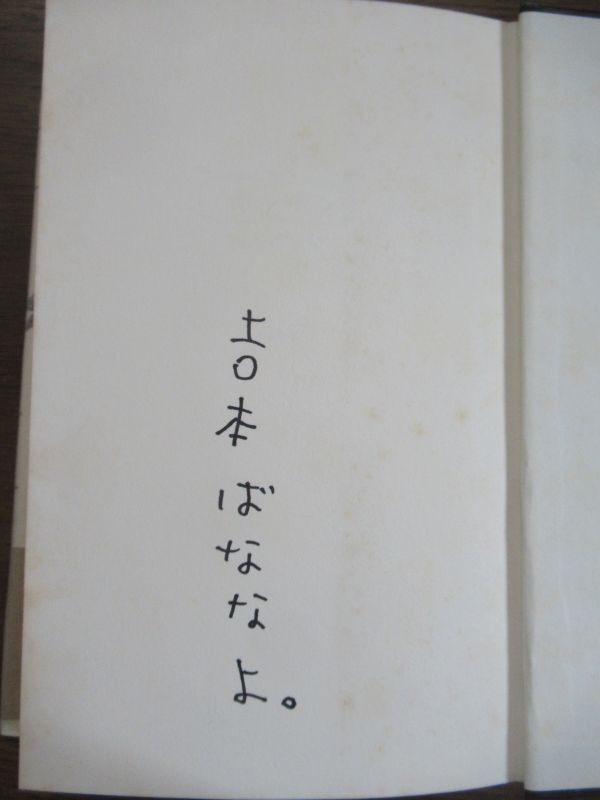 吉本ばななよ。